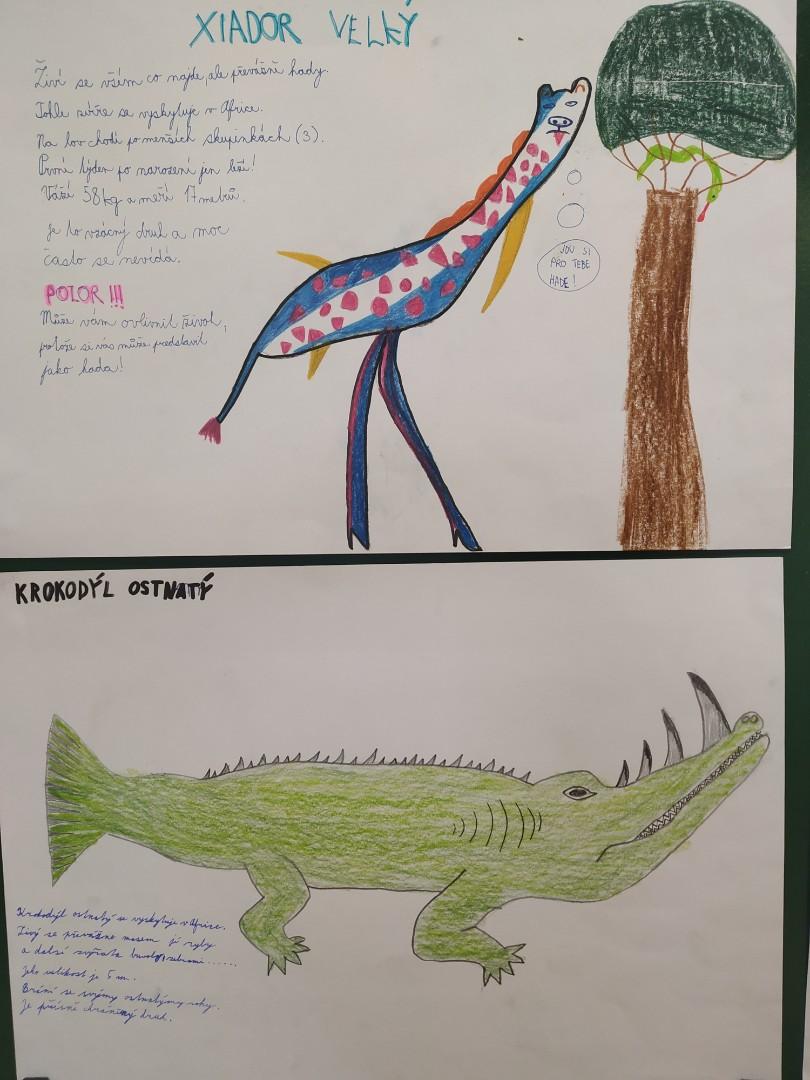 XIADOR VELKÝ
Živí se vším co najde, ale převážně hady.
Tohle zvíře se vyskytuje v Africe.
Na lov chodí po menších skupinkách (3).
První týden po narození jen leží!
Váží 58kg a měří 17 metrů.
Je to vzácný druh a moc
často se nevídá.
POZOR !!!
Může vám ovlivnit život,
protože si vás může představit
jako hada!
JDU SI
PRO TEBE
HADE!
KROKODÝL OSTNATÝ
Krokodýl ostnatý se vyskytuje v Africe.
Živý se převážně masem jí ryby
a další zvířata
Jeho velikost je 5 m.
Brání se svýmy ostnatýmy rohy.
Je přísně chráněný druh.